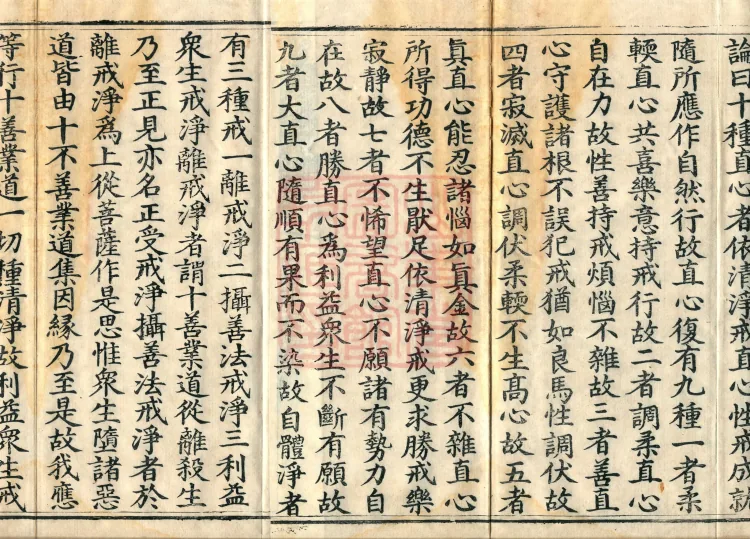 論曰十種直心者依清淨戒直心性戒成就
隨所應作自然行故直心復有九種一者柔
輭直心共喜樂意持戒行故二者調柔直心
自在力故性善持戒煩惱不雜故三者善直
心守護諸根不誤犯戒猶如良馬性調伏故
四者寂滅直心調伏柔輭不生髙心故五者
眞直心能忍諸惱如眞金故六者不雜直心
所得功德不生猒足依清淨戒更求勝戒樂
寂靜故七者不悕望直心不願諸有勢力自
在故八者勝直心為利益衆生不斷有願故
九者大直心隨順有果而不染故自體淨者
有三種戒一離戒淨二攝善法戒淨三利益
衆生戒淨離戒淨者謂十善業道從離殺生
乃至正見亦名正受戒淨攝善法戒淨者於
離戒淨為上從菩薩作是思惟衆生墮諸惡
道皆由十不善業道集因緣乃至是故我應
等行十善業道一切種清淨故利益衆生戒